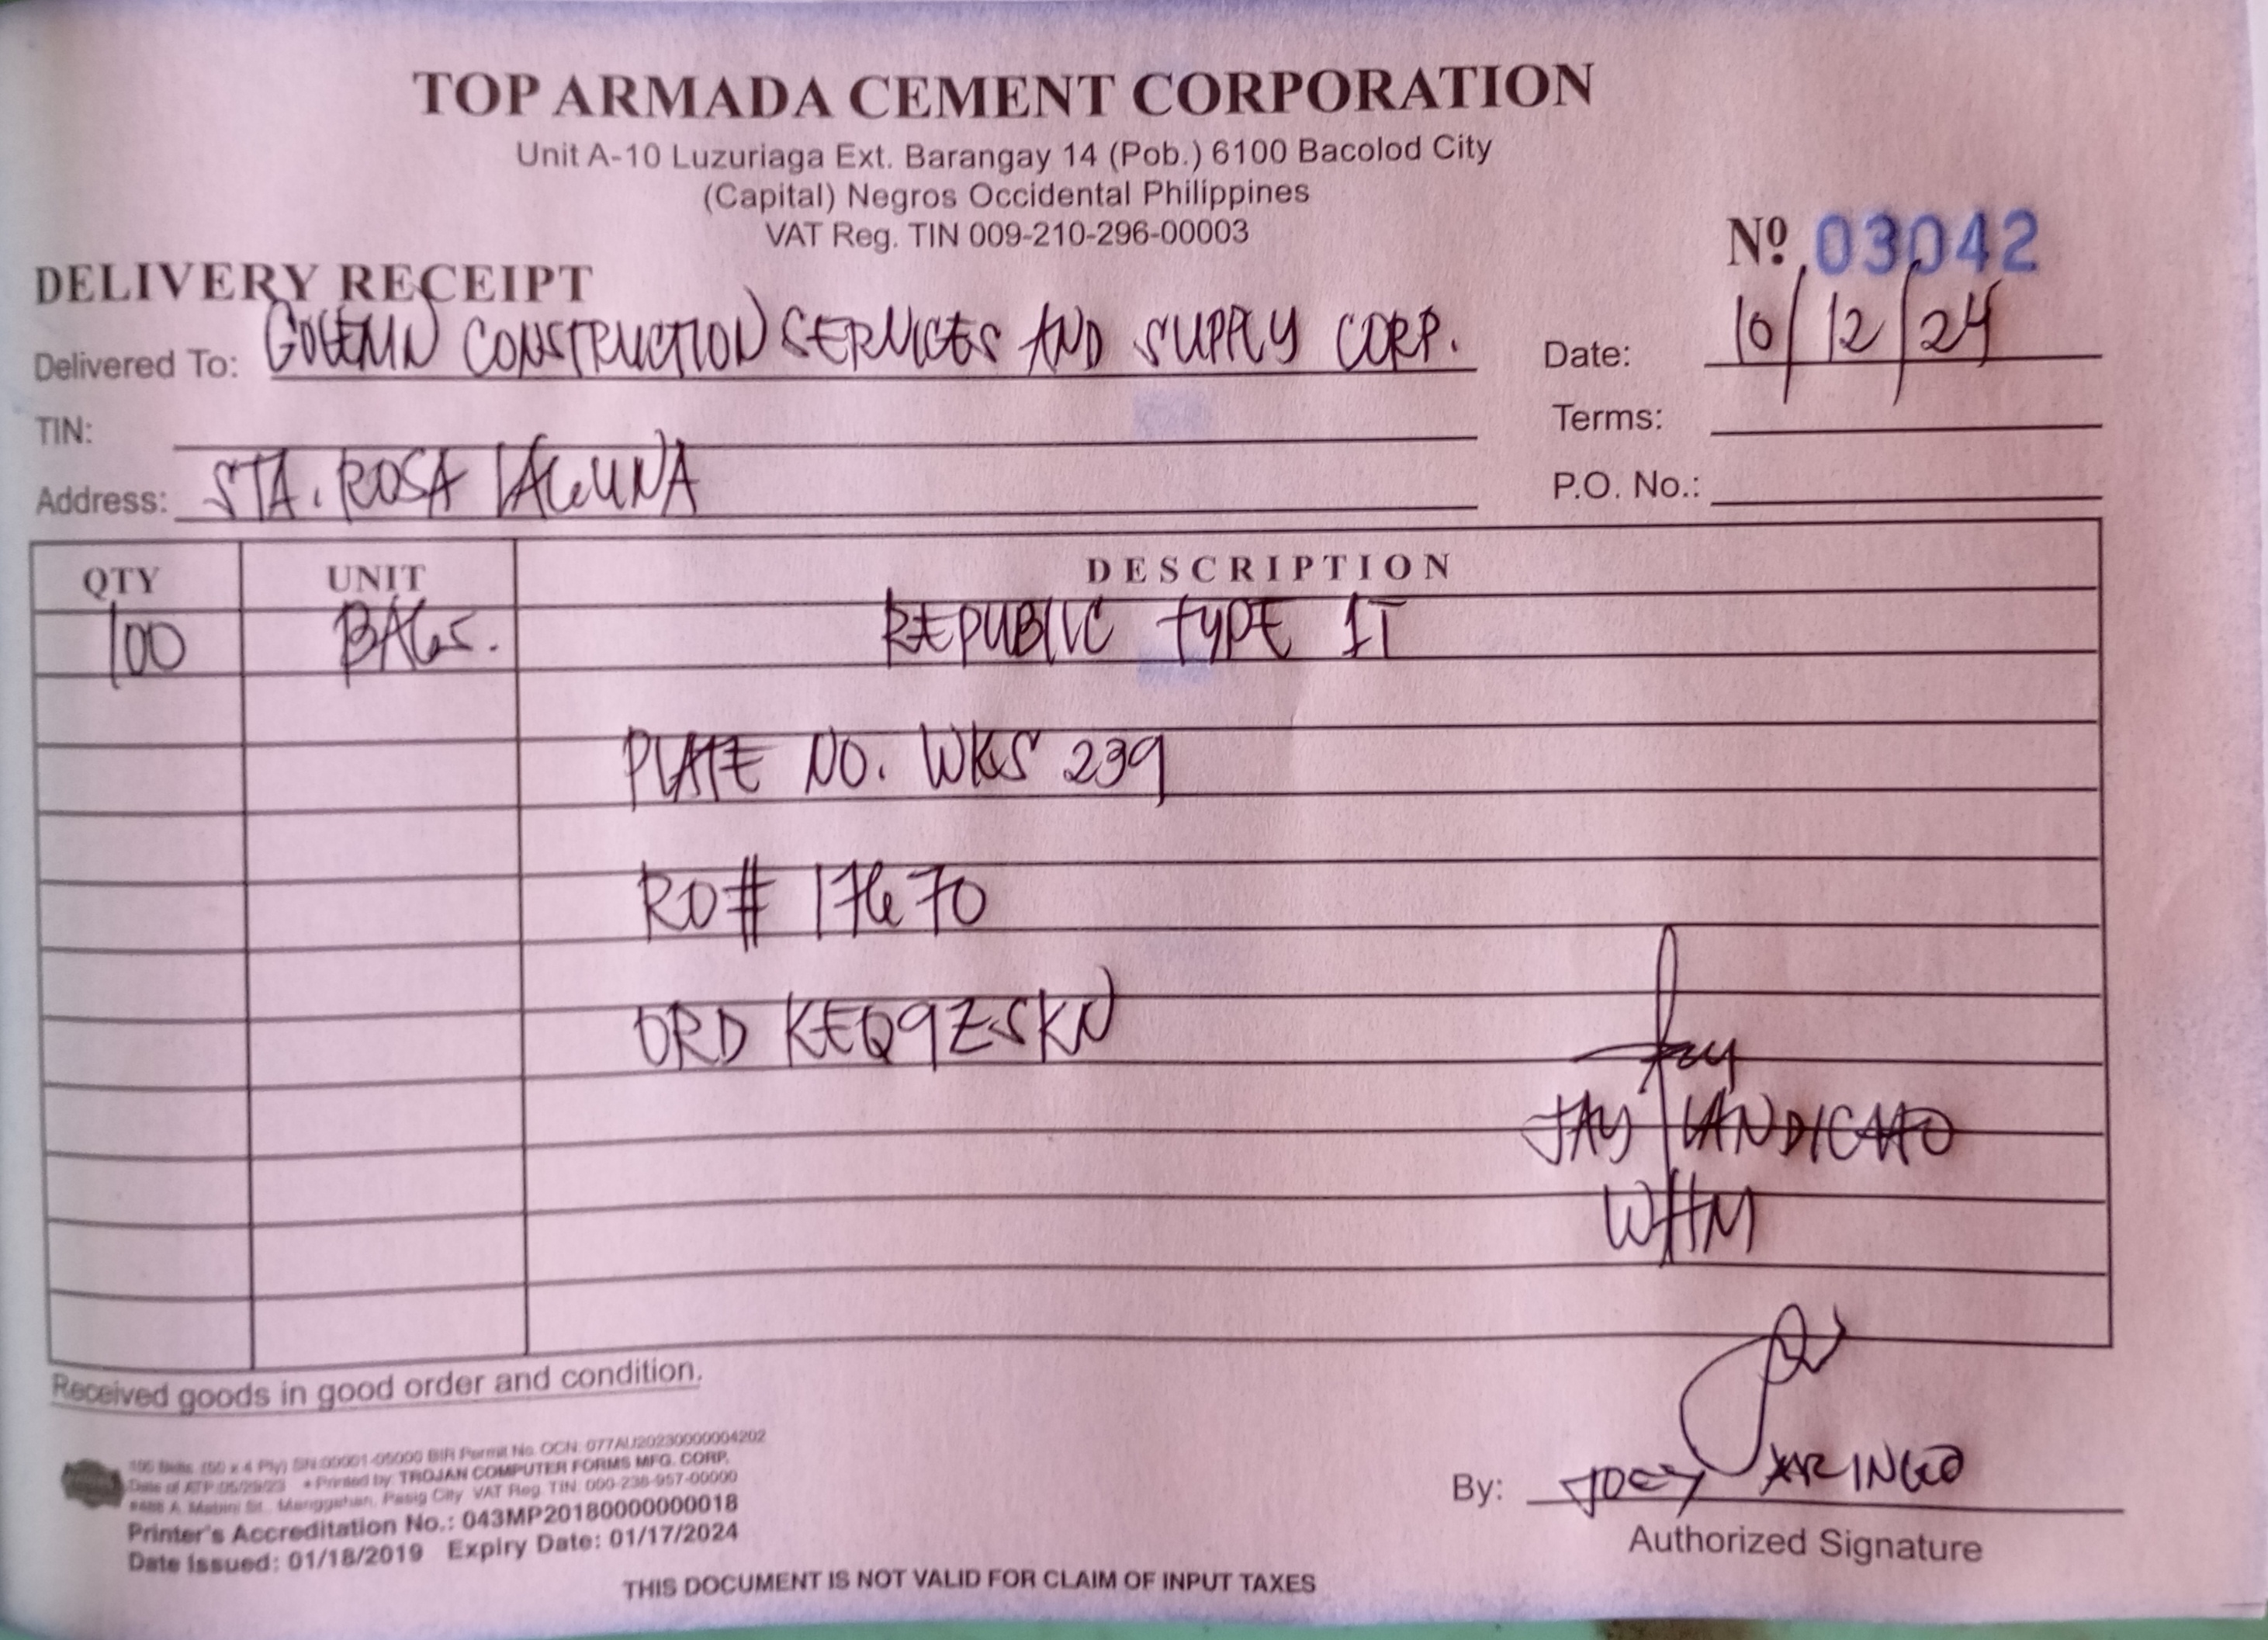 TOP ARMADA CEMENT CORPORATION
Unit A-10 Luzuriaga Ext. Barangay 14 (Pob.) 6100 Bacolod City
(Capital) Negros Occidental Philippines
VAT Reg. TIN 009-210-296-00003
Nº 03042
DELIVERY RECEIPT
Delivered To: CONSTRUCTION SERVICES AND SUPPLY CORP. Date: 10/12/24
TIN: Terms:
Address: STA. ROSA LAGUNA P.O. No.:
QTY UNIT DESCRIPTION
100 BAGS. REPUBLIC TYPE 1T
PLATE NO. WKS 239
RO# 17670
ORD KEQ9ZSKN
Jay
JAY LANDICHO
WHM
Received goods in good order and condition.
100 Bklts. (50 x 4 Ply) SN:00001-05000 BIR Permit No. OCN: 077AU20230000004202
Date of ATP:05/29/23 • Printed by: TROJAN COMPUTER FORMS MFG. CORP.
A. Mabini St., Manggahan, Pasig City VAT Reg. TIN: 000-238-957-00000
Printer's Accreditation No.: 043MP20180000000018
Date Issued: 01/18/2019 Expiry Date: 01/17/2024
By: JOEY ARINGO
Authorized Signature
THIS DOCUMENT IS NOT VALID FOR CLAIM OF INPUT TAXES